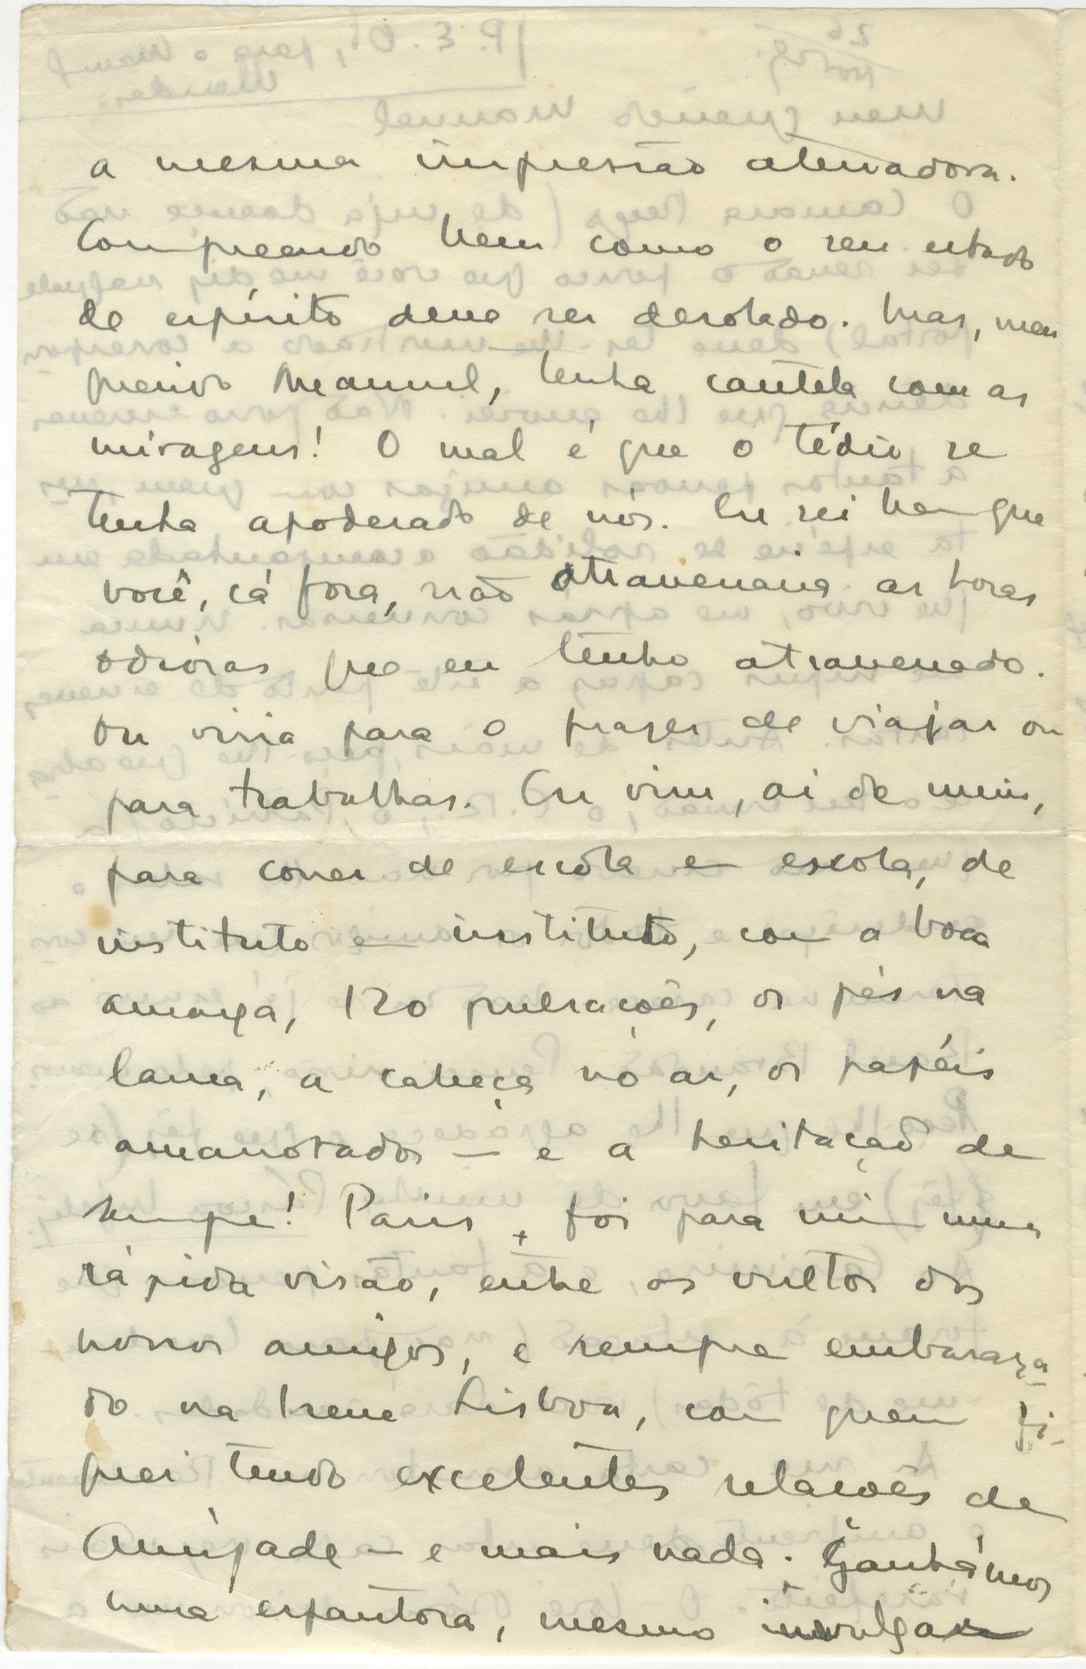 a mesma impressão aterradora.
Compreendo bem como o seu estado
de espírito deve ser desolado. Mas, meu
querido Manuel, tenha cautela com as
miragens! O mal é que o tédio se
tenha apoderado de nós. Eu sei bem que
você, cá fora, não atravessaria as horas
odiosas que eu tenho atravessado.
Ou viria para o prazer de viajar ou
para trabalhar. Eu vim, ai de mim,
para correr de escola em escola, de
instituto em instituto, com a boca
amarga, 120 pulsações, os pés na
lama, a cabeça no ar, os papéis
amarrotados — e a hesitação de
sempre! Paris, foi para mim uma
rápida visão, entre os vultos dos
nossos amigos, e sempre embaraça
do na Irene Lisboa, com quem fi-
quei tendo excelentes relações de
Amizade — e mais nada. Ganhámos
uma espantosa, mesmo invulgar